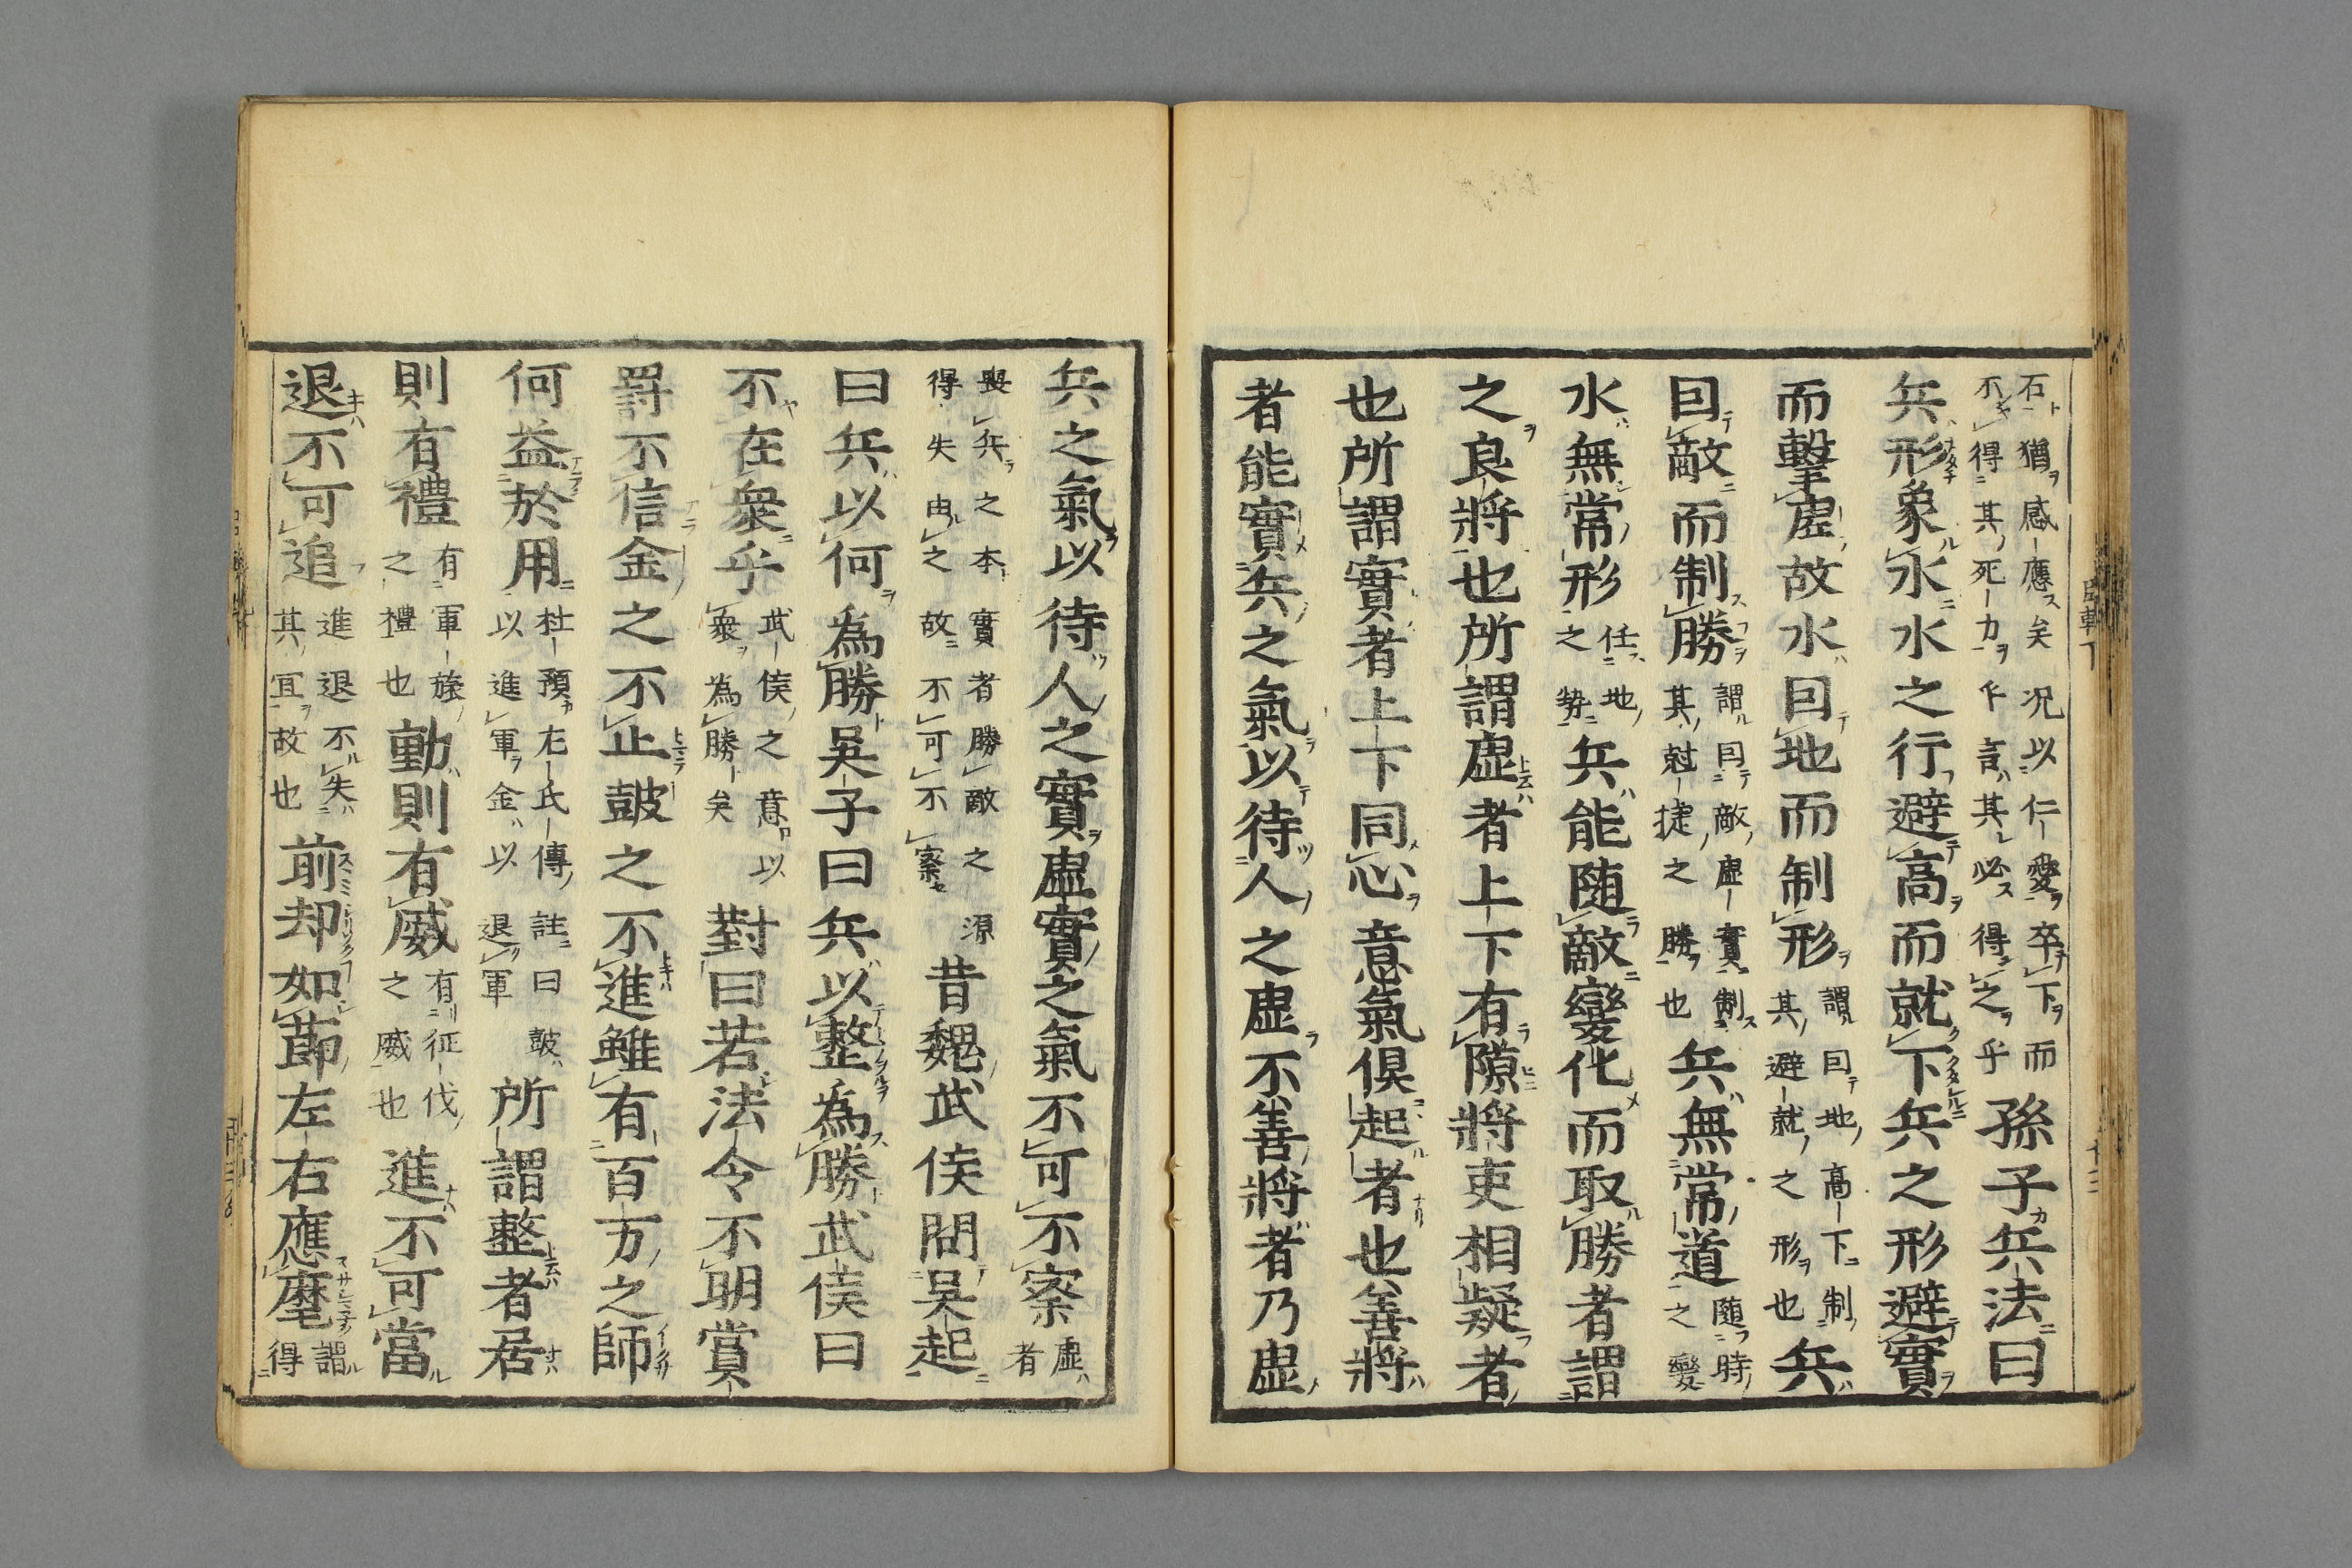 石猶感應矣况以仁愛卒下而
不得其死力乎言其必得之乎
孫子兵法曰
兵形象水水之行避高而就下兵之形避實
而擊虛故水囙地而制形
謂囙地高下制
其避就之形也
兵
囙敵而制勝
謂囙敵虛實制
其尅捷之勝也
兵無常道
随時
之變
水無常形
任地
之勢
兵能随敵變化而取勝者謂
之良將也所謂虛者上下有隙將吏相疑者
也所謂實者上下同心意氣倶起者也善將
者能實兵之氣以待人之虛不善將者乃虛
兵之氣以待人之實虛實之氣不可不察
虛者
喪兵之本實者勝敵之源
得失由之故不可不察
昔魏武侯問吳起
曰兵以何為勝吳子曰兵以整為勝武侯曰
不在衆乎
武侯之意以
衆為勝矣
對曰若法令不明賞
罸不信金之不止皷之不進雖有百万之師
何益於用
杜預左氏傳註曰皷
以進軍金以退軍
所謂整者居
則有禮
有軍旅
之禮也
動則有威
有征伐
之威也
進不可當
退不可追
進退不失
其宜故也
前却如莭左右應麾
謂
得